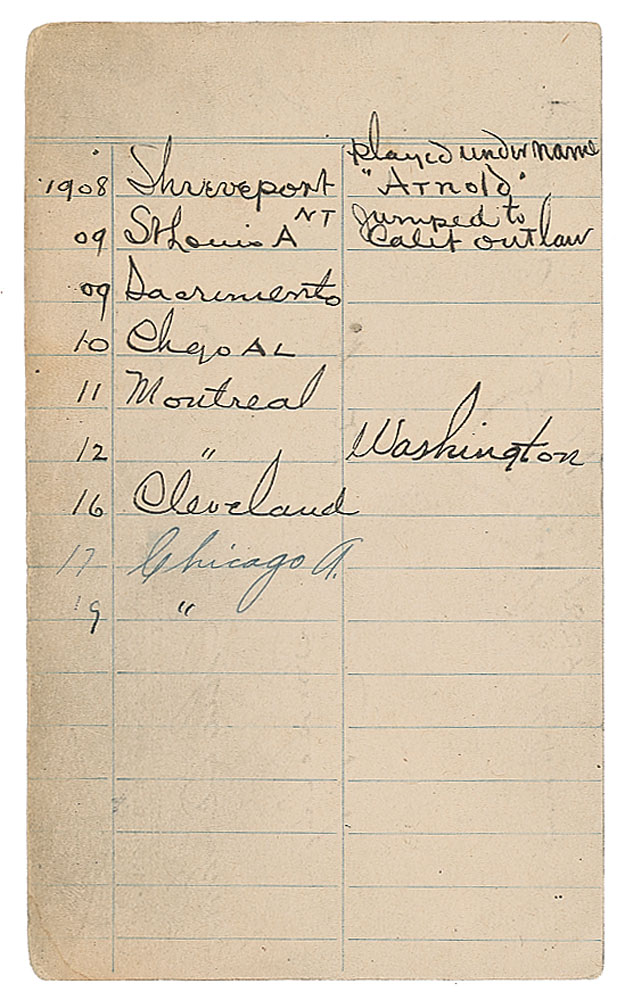 played under name
1908 Shreveport "Arnold"
NT Jumped to
09 St Louis A Calif outlaw
09 Sacrimento
10 Chgo AL
11 Montreal
12 " Washington
16 Cleveland
17 Chicago A.
19 "